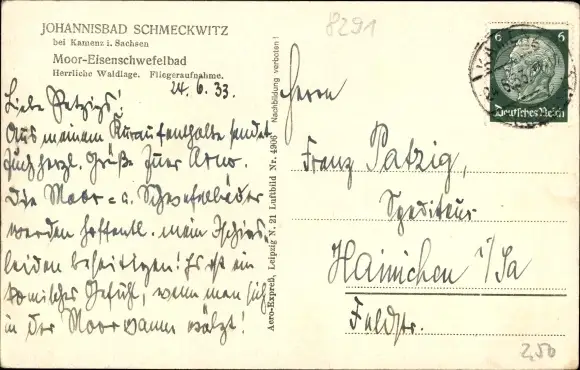 8291
JOHANNISBAD SCHMECKWITZ
bei Kamenz i. Sachsen
Moor-Eisenschwefelbad
Herrliche Waldlage. Fliegeraufnahme.
24.6.33.
Liebe Patzigs!
Aus meinem Kuraufenthalte sendet
Euch herzl. Grüße Euer Arno.
Die Moor- u. Schwefelbäder
werden hoffentl. mein Ischias-
leiden beseitigen! Es ist ein
komisches Gefühl, wenn man sich
in der Moorwanne wälzt!
Aero-Expreß, Leipzig N. 21 Luftbild Nr. 4906 Nachbildung verboten!
6 6
Deutsches Reich
Herrn
Franz Patzig,
Spediteur
Hainichen i/Sa
Feldstr.
2,50